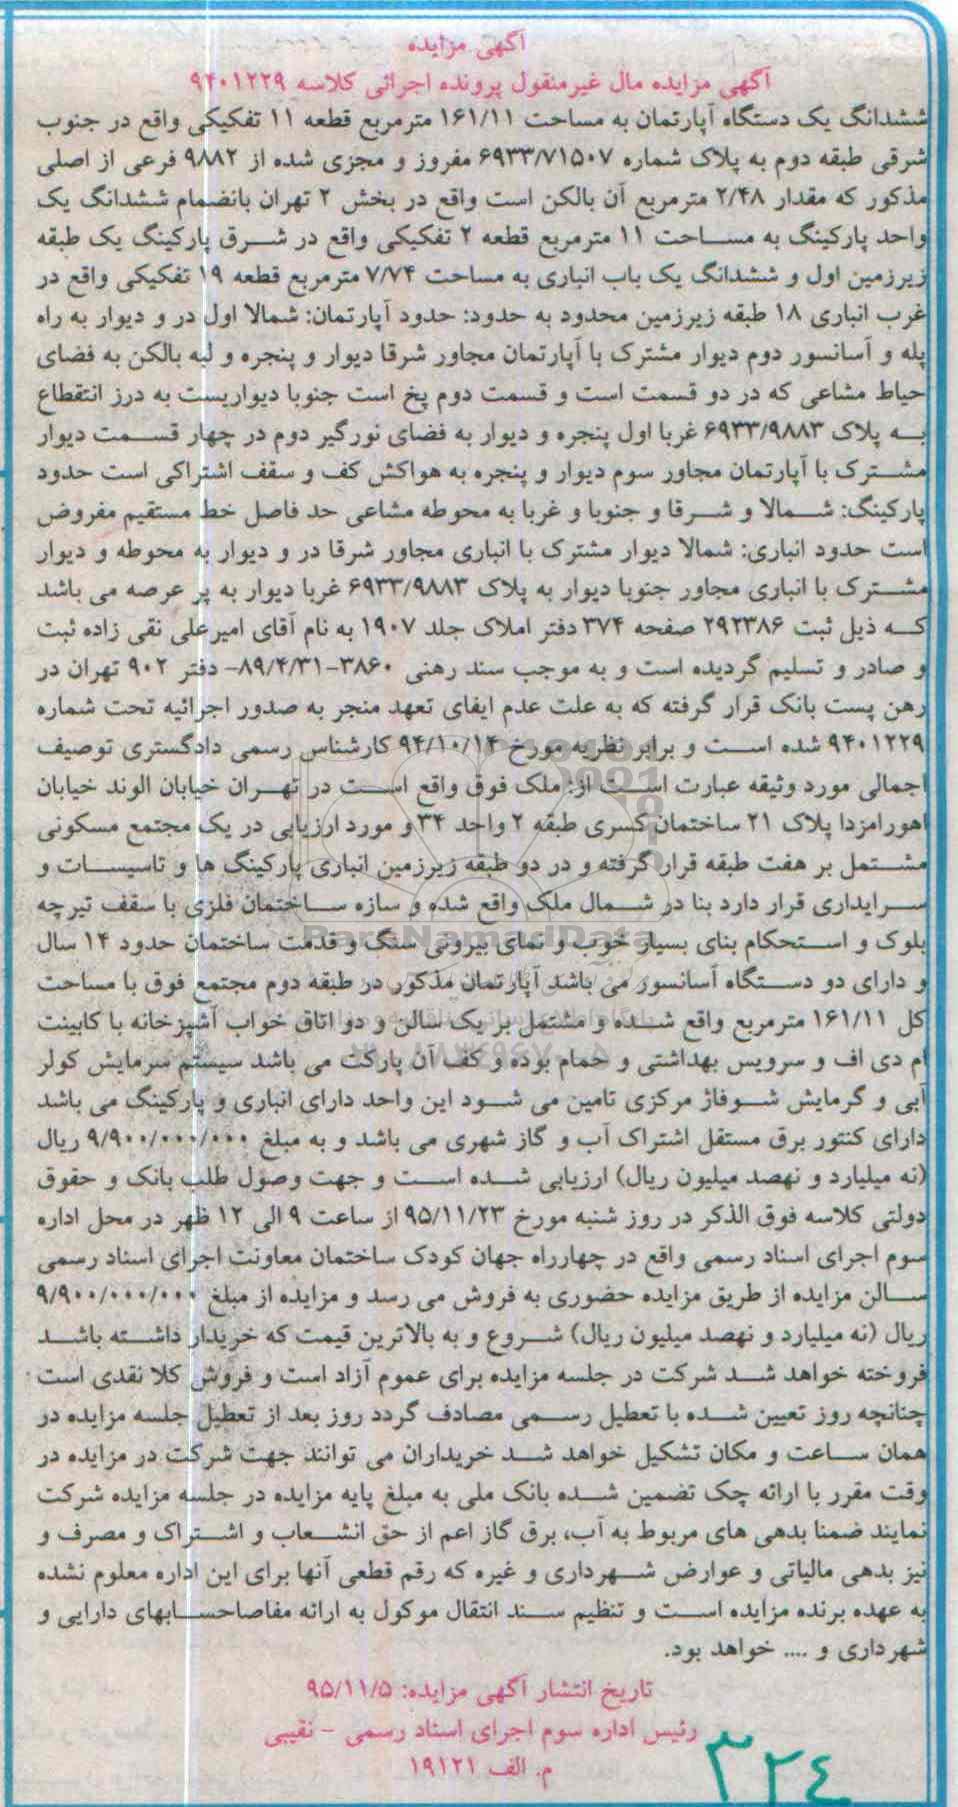 آگهی مزایده
آگهی مزایده مال غیرمنقول پرونده اجرائی کلاسه ۹۴۰۱۲۲۹
ششدانگ یک دستگاه آپارتمان به مساحت ۱۶۱/۱۱ مترمربع قطعه ۱۱ تفکیکی واقع در جنوب
شرقی طبقه دوم به پلاک شماره ۶۹۳۳/۷۱۵۰۷ مفروز و مجزی شده از ۹۸۸۲ فرعی از اصلی
مذکور که مقدار ۲/۴۸ مترمربع آن بالکن است واقع در بخش ۲ تهران بانضمام ششدانگ یک
واحد پارکینگ به مساحت ۱۱ مترمربع قطعه ۲ تفکیکی واقع در شرق پارکینگ یک طبقه
زیرزمین اول و ششدانگ یک باب انباری به مساحت ۷/۷۴ مترمربع قطعه ۱۹ تفکیکی واقع در
غرب انباری ۱۸ طبقه زیرزمین محدود به حدود: حدود آپارتمان: شمالا اول در و دیوار به راه
پله و آسانسور دوم دیوار مشترک با آپارتمان مجاور شرقا دیوار و پنجره و لبه بالکن به فضای
حیاط مشاعی که در دو قسمت است و قسمت دوم پخ است جنوبا دیواریست به درز انتقطاع
به پلاک ۶۹۳۳/۹۸۸۳ غربا اول پنجره و دیوار به فضای نورگیر دوم در چهار قسمت دیوار
مشترک با آپارتمان مجاور سوم دیوار و پنجره به هواکش کف و سقف اشتراکی است حدود
پارکینگ: شمالا و شرقا و جنوبا و غربا به محوطه مشاعی حد فاصل خط مستقیم مفروض
است حدود انباری: شمالا دیوار مشترک با انباری مجاور شرقا در و دیوار به محوطه و دیوار
مشترک با انباری مجاور جنوبا دیوار به پلاک ۶۹۳۳/۹۸۸۳ غربا دیوار به پر عرصه می باشد
که ذیل ثبت ۲۹۲۳۸۶ صفحه ۳۷۴ دفتر املاک جلد ۱۹۰۷ به نام آقای امیرعلی نقی زاده ثبت
و صادر و تسلیم گردیده است و به موجب سند رهنی ۳۸۶۰-۸۹/۴/۳۱- دفتر ۹۰۲ تهران در
رهن پست بانک قرار گرفته که به علت عدم ایفای تعهد منجر به صدور اجرائیه تحت شماره
۹۴۰۱۲۲۹ شده است و برابر نظریه مورخ ۹۴/۱۰/۱۴ کارشناس رسمی دادگستری توصیف
اجمالی مورد وثیقه عبارت است از: ملک فوق واقع است در تهران خیابان الوند خیابان
اهورامزدا پلاک ۲۱ ساختمان کسری طبقه ۲ واحد ۳۴ و مورد ارزیابی در یک مجتمع مسکونی
مشتمل بر هفت طبقه قرار گرفته و در دو طبقه زیرزمین انباری پارکینگ ها و تاسیسات و
سرایداری قرار دارد بنا در شمال ملک واقع شده و سازه ساختمان فلزی با سقف تیرچه
بلوک و استحکام بنای بسیار خوب و نمای بیرونی سنگ و قدمت ساختمان حدود ۱۴ سال
و دارای دو دستگاه آسانسور می باشد آپارتمان مذکور در طبقه دوم مجتمع فوق با مساحت
کل ۱۶۱/۱۱ مترمربع واقع شده و مشتمل بر یک سالن و دو اتاق خواب آشپزخانه با کابینت
ام دی اف و سرویس بهداشتی و حمام بوده و کف آن پارکت می باشد سیستم سرمایش کولر
آبی و گرمایش شوفاژ مرکزی تامین می شود این واحد دارای انباری و پارکینگ می باشد
دارای کنتور برق مستقل اشتراک آب و گاز شهری می باشد و به مبلغ ۹/۹۰۰/۰۰۰/۰۰۰ ریال
(نه میلیارد و نهصد میلیون ریال) ارزیابی شده است و جهت وصول طلب بانک و حقوق
دولتی کلاسه فوق الذکر در روز شنبه مورخ ۹۵/۱۱/۲۳ از ساعت ۹ الی ۱۲ ظهر در محل اداره
سوم اجرای اسناد رسمی واقع در چهارراه جهان کودک ساختمان معاونت اجرای اسناد رسمی
سالن مزایده از طریق مزایده حضوری به فروش می رسد و مزایده از مبلغ ۹/۹۰۰/۰۰۰/۰۰۰
ریال (نه میلیارد و نهصد میلیون ریال) شروع و به بالاترین قیمت که خریدار داشته باشد
فروخته خواهد شد شرکت در جلسه مزایده برای عموم آزاد است و فروش کلا نقدی است
چنانچه روز تعیین شده با تعطیل رسمی مصادف گردد روز بعد از تعطیل جلسه مزایده در
همان ساعت و مکان تشکیل خواهد شد خریداران می توانند جهت شرکت در مزایده در
وقت مقرر با ارائه چک تضمین شده بانک ملی به مبلغ پایه مزایده در جلسه مزایده شرکت
نمایند ضمنا بدهی های مربوط به آب، برق گاز اعم از حق انشعاب و اشتراک و مصرف و
نیز بدهی مالیاتی و عوارض شهرداری و غیره که رقم قطعی آنها برای این اداره معلوم نشده
به عهده برنده مزایده است و تنظیم سند انتقال موکول به ارائه مفاصاحسابهای دارایی و
شهرداری و .... خواهد بود.
تاریخ انتشار آگهی مزایده: ۹۵/۱۱/۵
رئیس اداره سوم اجرای اسناد رسمی - نقیبی
م. الف ۱۹۱۲۱
۳۲۴
ParsNamadData